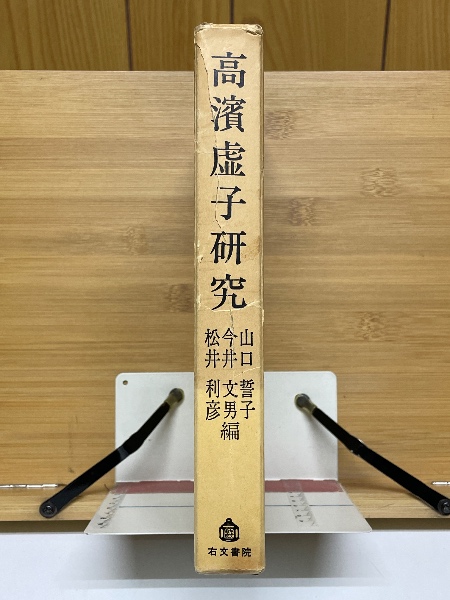 高濱虚子研究
山口誓子
今井文男編
松井利彦
右文書院